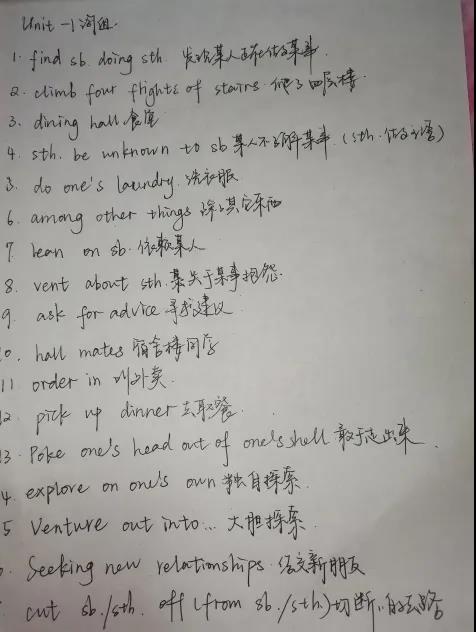 Unit-1词组.
1. find sb. doing sth. 发现某人正在做某事.
2. climb four flights of stairs. 爬了四层楼.
3. dining hall 食堂
4. sth. be unknown to sb 某人不了解某事. (sth.做主语)
5. do one's laundry. 洗衣服
6. among other things 除了其它东西
7. lean on sb. 依赖某人
8. vent about sth. 关于某事抱怨.
9. ask for advice 寻求建议
0. hall mates 宿舍楼同学
11 order in 叫外卖.
12. pick up dinner 去取餐.
13. Poke one's head out of one's shell 敢于走出来.
4. explore on one's own 独自探索.
5 Venture out into... 大胆探索.
Seeking new relationships. 结交新朋友
cut sb./sth. off (from sb./sth.) 切断..的